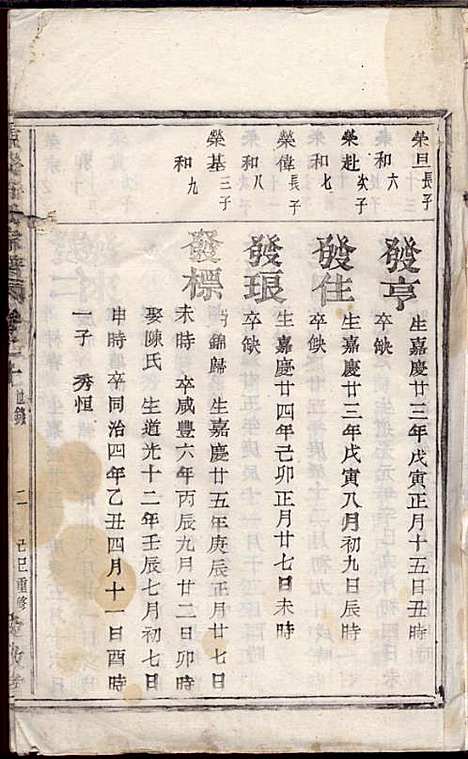 榮旦長子
和六
發亨
生嘉慶廿三年戊寅正月十五日丑時
卒缺
榮赴次子
和七
發住
生嘉慶廿三年戊寅八月初九日辰時
卒缺
榮偉長子
和八
發琅
生嘉慶廿四年己卯正月廿七日未時
卒缺
榮基三子
和九
發標
錦歸 生嘉慶廿五年庚辰正月廿七日
未時 卒咸豐六年丙辰九月廿二日卯時
娶陳氏 生道光十二年壬辰七月初七日
申時 卒同治四年乙丑四月十一日酉時
一子 秀恒
世錄 二 己巳重修